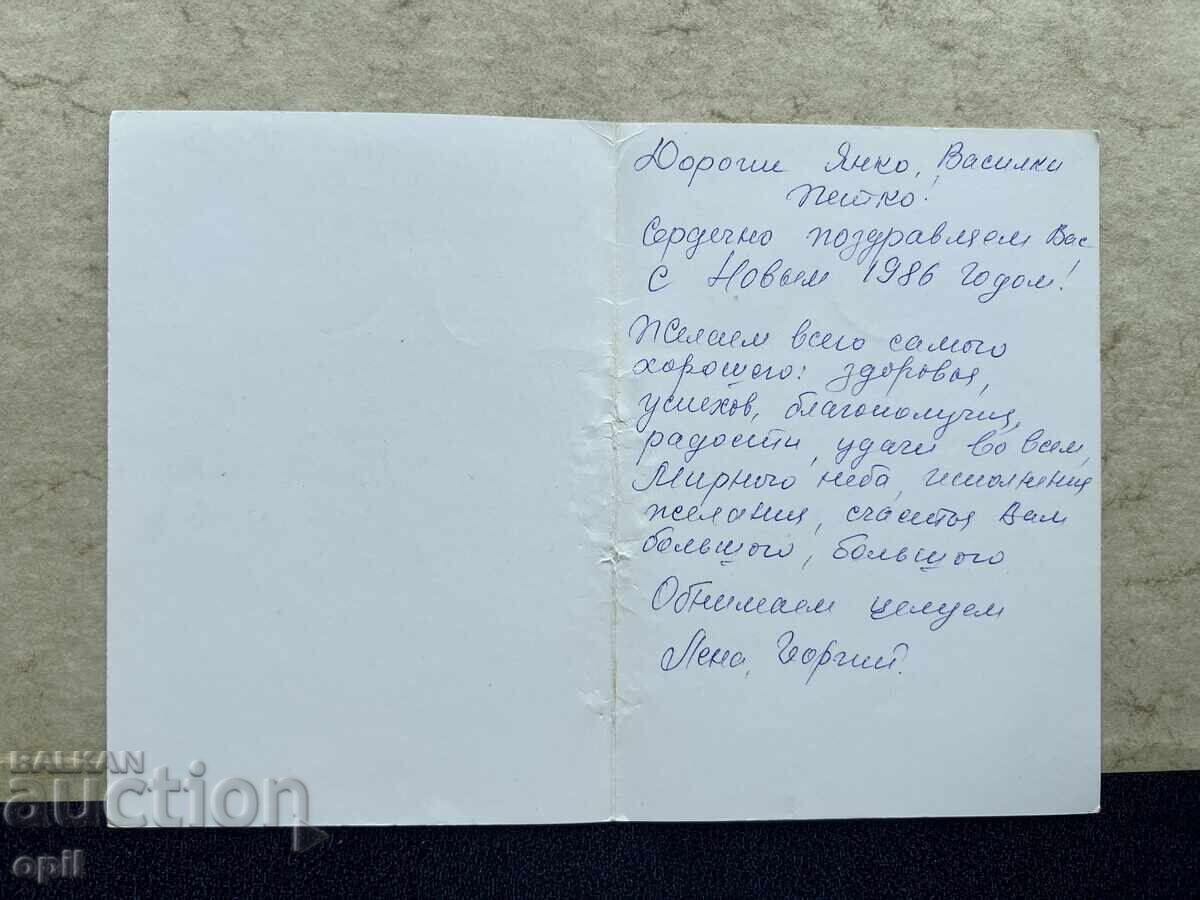 Дороги Янко, Василки
Петко!
Сердечно поздравляем Вас
с Новым 1986 годом!
Желаем всего самого
хорошего: здоровья,
успехов, благополучия,
радости, удачи во всем,
Мирного неба, исполнения
желания, счастья Вам
большого, большого
Обнимаем целуем
Лена, Георгий.
BALKAN
auction
opil